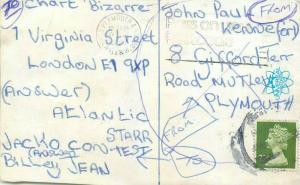 To
Chart Bizarre
1 Virginia Street
LONDON E1 9XP
(Answer)
Atlantic
STARR
JACKO CONTEST
(Answer)
Billey JEAN
From
John Paul
Kenne(er)
8 Gifford Terr
Road Mutley
PLYMOUTH
From
To